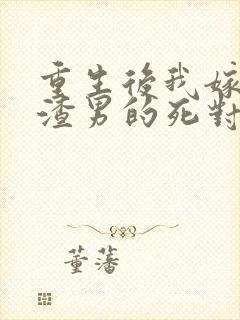 重生後我嫁
渣男的死對
董藩